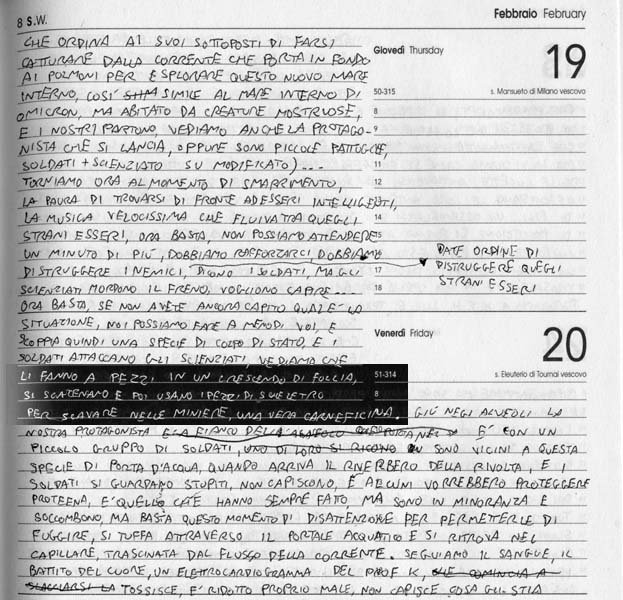 8 S.W.
Febbraio February
CHE ORDINA AI SUOI SOTTOPOSTI DI FARSI
CATTURARE DALLA CORRENTE CHE PORTA IN FONDO
AI POLMONI PER ESPLORARE QUESTO NUOVO MARE
INTERNO, COSÌ SIMILE AL MARE INTERNO DI
OMICRON, MA ABITATO DA CREATURE MOSTRUOSE,
E I NOSTRI PARTONO, VEDIAMO ANCHE LA PROTAGO-
NISTA CHE SI LANCIA, OPPURE SONO PICCOLE PATTUGLIE,
SOLDATI + SCIENZIATO SU MODIFICATO)...
TORNIAMO ORA AL MOMENTO DI SMARRIMENTO,
LA PAURA DI TROVARSI DI FRONTE AD ESSERI INTELLIGENTI,
LA MUSICA VELOCISSIMA CHE FLUIVA TRA QUEGLI
STRANI ESSERI, ORA BASTA, NON POSSIAMO ATTENDERE
UN MINUTO DI PIÙ, DOBBIAMO RAFFORZARCI, DOBBIAMO
DISTRUGGERE I NEMICI, DICONO I SOLDATI, MA GLI
SCIENZIATI MORDONO IL FRENO, VOGLIONO CAPIRE...
ORA BASTA, SE NON AVETE ANCORA CAPITO QUAL È LA
SITUAZIONE, NOI POSSIAMO FARE A MENO DI VOI, E
SCOPPIA QUINDI UNA SPECIE DI COLPO DI STATO, E I
SOLDATI ATTACCANO GLI SCIENZIATI, VEDIAMO CHE
LI FANNO A PEZZI IN UN CRESCENDO DI FOLLIA,
SI SCATENANO E POI USANO I PEZZI DI SCHELETRO
PER SCAVARE NELLE MINIERE, UNA VERA CARNEFICINA. GIÙ NEGLI ALVEOLI LA
NOSTRA PROTAGONISTA È CON UN
PICCOLO GRUPPO DI SOLDATI, UNO DI LORO SI SONO VICINI A QUESTA
SPECIE DI PORTA D'ACQUA, QUANDO ARRIVA IL RIVERBERO DELLA RIVOLTA, E I
SOLDATI SI GUARDANO STUPITI, NON CAPISCONO, E ALCUNI VORREBBERO PROTEGGERE
PROTEENA, È QUELLO CHE HANNO SEMPRE FATTO, MA SONO IN MINORANZA E
SOCCOMBONO, MA BASTA QUESTO MOMENTO DI DISATTENZIONE PER PERMETTERLE DI
FUGGIRE, SI TUFFA ATTRAVERSO IL PORTALE ACQUATICO E SI RITROVA NEL
CAPILLARE, TRASCINATA DAL FLUSSO DELLA CORRENTE. SEGUIAMO IL SANGUE, IL
BATTITO DEL CUORE, UN ELETTROCARDIOGRAMMA DEL PROF K, CHE COMINCIA A
TOSSISCE, È RIDOTTO PROPRIO MALE, NON CAPISCE COSA GLI STIA
Giovedì Thursday
19
50-315
s. Mansueto di Milano vescovo
8
9
11
12
14
15
16
17
18
DATE ORDINE DI
DISTRUGGERE QUEGLI
STRANI ESSERI
Venerdì Friday
20
51-314
s. Eleuterio di Tournai vescovo
8